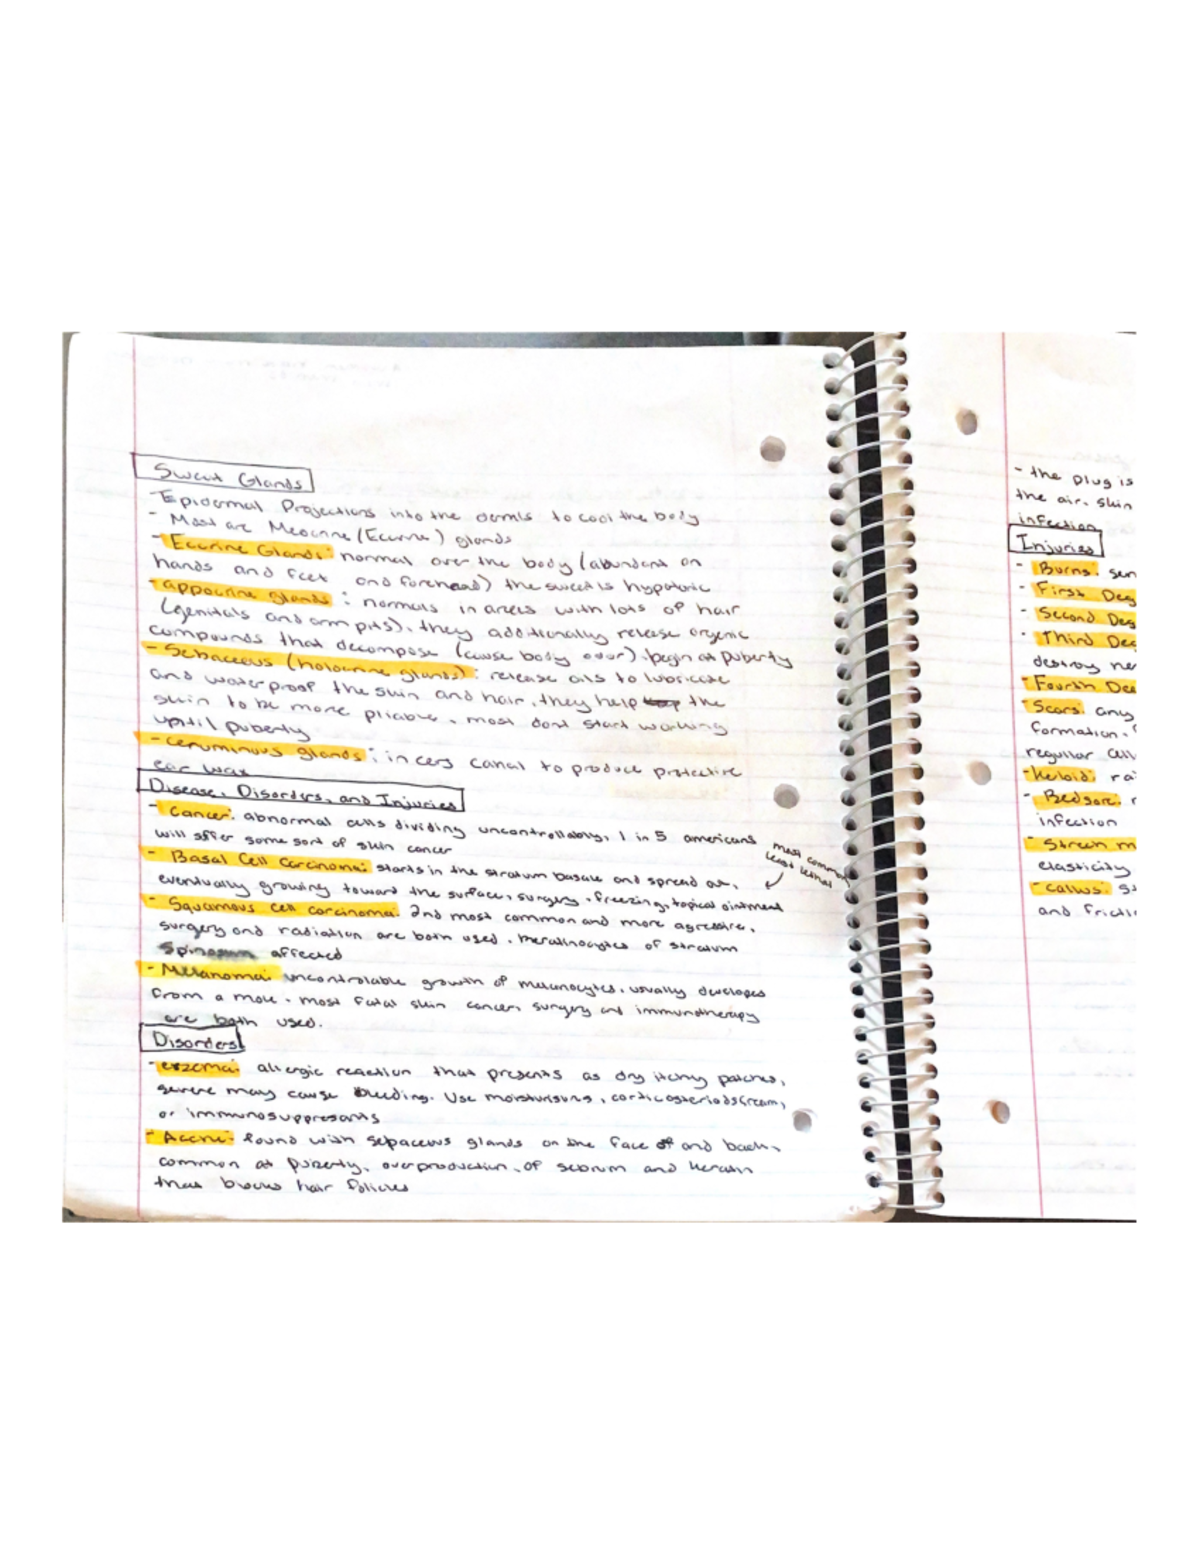 Sweat Glands
Epidermal Projections into the dermis to cool the body
- Most are Meocrine (Eccrine) glands
- Eccrine Glands: normal over the body (abundant on
hands and feet and forehead) the sweat is hypotonic
- appocrine glands: normals in areas with lots of hair
(genitals and arm pits), they additionally release organic
compounds that decompose (cause body odor). begin at puberty
- Sebaceous (holocrine glands): release oils to lubricate
and waterproof the skin and hair, they help the
skin to be more pliable, most dont start working
until puberty
- ceruminous glands: in ears canal to produce protective
ear wax
Disease, Disorders, and Injuries
- Cancer: abnormal cells dividing uncontrollably, 1 in 5 americans
will sffer some sort of skin cancer
most common
least lethal
- Basal Cell Carcinoma: starts in the stratum basale and spread out,
eventually growing toward the surface, surgery, freezing, topical ointment
- Squamous cell carcinoma: 2nd most common and more agressive,
surgery and radiation are both used. keratinocytes of stratum
Spinosum affected
- Melanoma: uncontrolable growth of melanocytes, usually developes
from a mole. most fatal skin cancer, surgery and immunotherapy
are both used.
Disorders
- eszema: allergic reaction that presents as dry itchy patches,
severe may cause bleeding. Use moisturisers, corticosteriods cream,
or immunosuppresants
- Accne: found with sebaceous glands on the face and back,
common at puberty, overproduction of sebum and keratin
that blocks hair folicles
- the plug is
the air. skin
infection
Injuries
- Burns: sen
- First Deg
- Second Deg
- Third Deg
destroy ne
- Fourth Dee
- Scars: any
formation.
regullar cell
- Keloid: ra
- Bedsore: r
infection
- Strech m
elasticity
- callus: S
and frictio